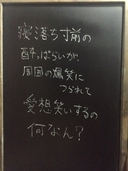 寝落ち寸前の
酔っぱらいが、
周囲の爆笑に
つられて
愛想笑いするの
何なん？